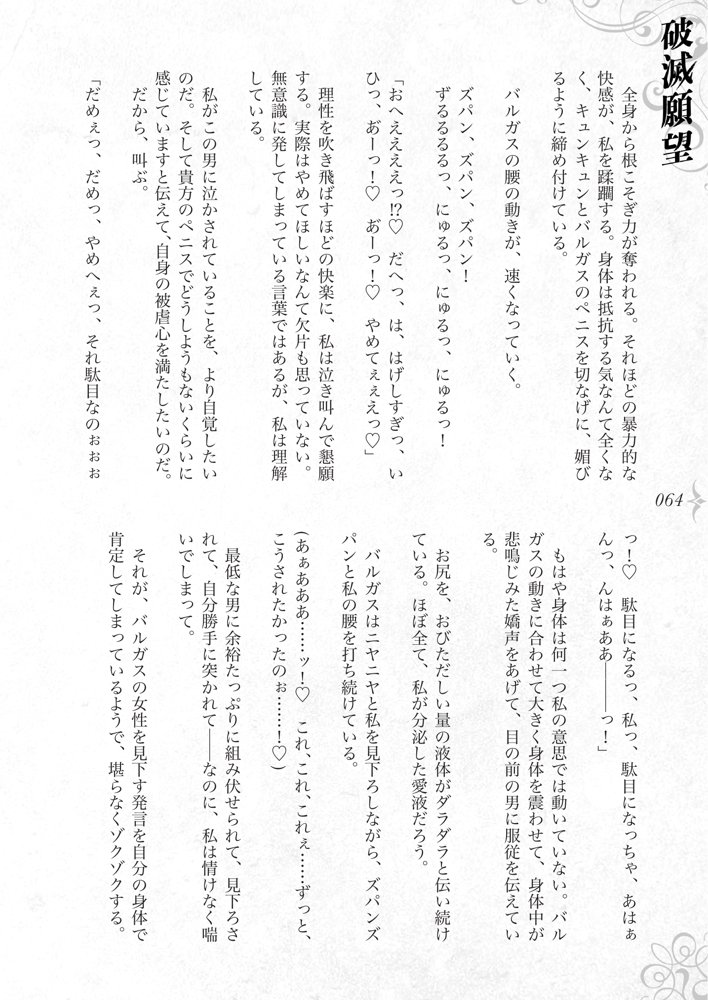 破滅願望
全身から根こそぎ力が奪われる。それほどの暴力的な
快感が、私を蹂躙する。身体は抵抗する気なんて全くな
く、キュンキュンとバルガスのペニスを切なげに、媚び
るように締め付けている。
バルガスの腰の動きが、速くなっていく。
ズパン、ズパン、ズパン！
ずるるるるっ、にゅるっ、にゅるっ、にゅるっ！
「おへええええっ!?♡　だへっ、は、はげしすぎっ、い
ひっ、あ゛ーっ！♡　あ゛ーっ！♡　やめてぇぇえっ♡」
理性を吹き飛ばすほどの快楽に、私は泣き叫んで懇願
する。実際はやめてほしいなんて欠片も思っていない。
無意識に発してしまっている言葉ではあるが、私は理解
している。
私がこの男に泣かされていることを、より自覚したい
のだ。そして貴方のペニスでどうしようもないくらいに
感じていますと伝えて、自身の被虐心を満たしたいのだ。
だから、叫ぶ。
「だめぇっ、だめっ、やめへぇっ、それ駄目なのぉぉぉ
064
っ！♡　駄目になるっ、私っ、駄目になっちゃ、あはぁ
んっ、んはぁああ――っ！」
もはや身体は何一つ私の意思では動いていない。バル
ガスの動きに合わせて大きく身体を震わせて、身体中が
悲鳴じみた嬌声をあげて、目の前の男に服従を伝えてい
る。
お尻を、おびただしい量の液体がダラダラと伝い続け
ている。ほぼ全て、私が分泌した愛液だろう。
バルガスはニヤニヤと私を見下ろしながら、ズパンズ
パンと私の腰を打ち続けている。
(あぁあああ……ッ！♡　これ、これ、これぇ……ずっと、
こうされたかったのぉ……！♡)
最低な男に余裕たっぷりに組み伏せられて、見下ろさ
れて、自分勝手に突かれて――なのに、私は情けなく喘
いでしまって。
それが、バルガスの女性を見下す発言を自分の身体で
肯定してしまっているようで、堪らなくゾクゾクする。